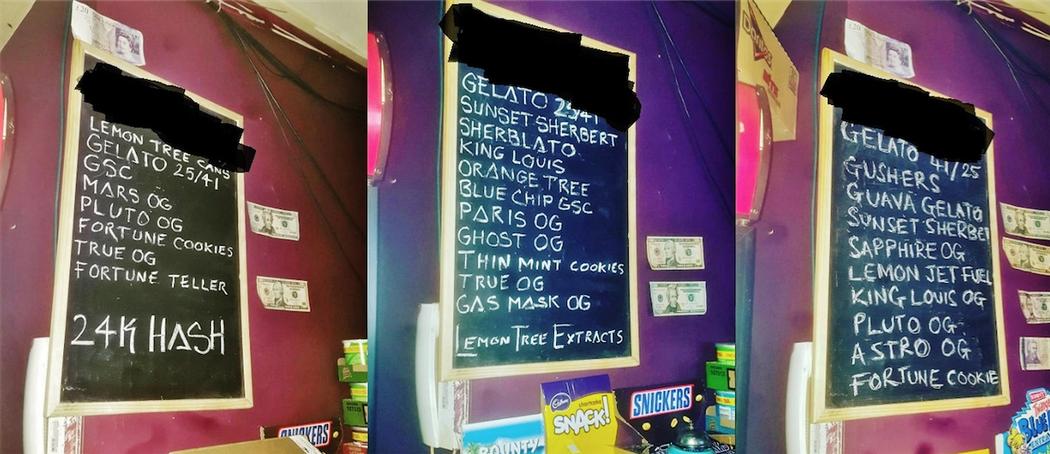 LEMON TREE CANS
GELATO 25/41
GSC
MARS OG
PLUTO OG
FORTUNE COOKIES
TRUE OG
FORTUNE TELLER
24K HASH
SNICKERS
GELATO 25/41
SUNSET SHERBERT
SHERBLATO
KING LOUIS
ORANGE TREE
BLUE CHIP GSC
PARIS OG
GHOST OG
THIN MINT COOKIES
TRUE OG
GAS MASK OG
LEMON TREE EXTRACTS
BOUNTY
Cadbury
SNACK!
SNICKERS
£20
GELATO 41/25
GUSHERS
GUAVA GELATO
SUNSET SHERBET
SAPPHIRE OG
LEMON JET FUEL
KING LOUIS OG
PLUTO OG
ASTRO OG
FORTUNE COOKIE